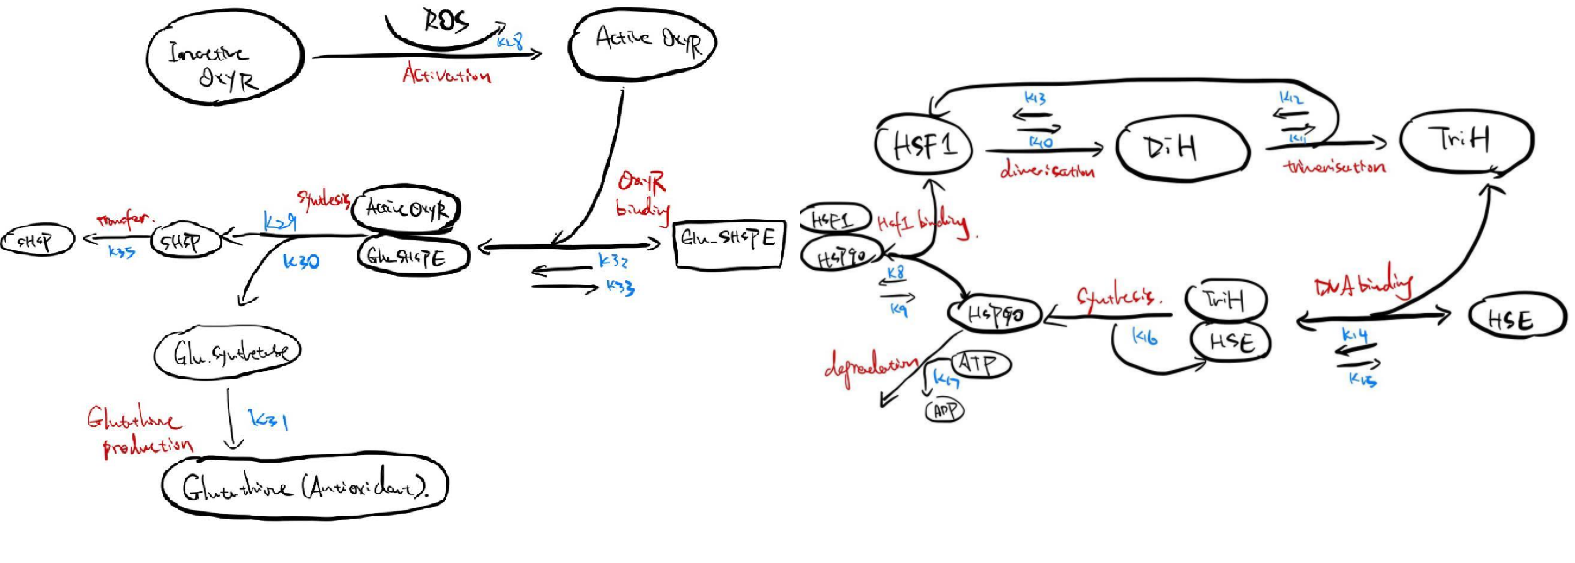 Inactive
OxyR
ROS
K28
Activation
Active OxyR
OxyR
binding
K32
K33
Glu_SHSPE
Active OxyR
Glu_SHSPE
Synthesis
K29
K30
SHSP
Transfer.
K35
SHSP
Glu.synthetase
K31
Glutathione
production
Glutathione (Antioxidant).
HSF1
K13
K10
dimerisation
DiH
K12
K11
trimerisation
TriH
HSF1
HSP90
Hsf1 binding.
K8
K9
HSP90
Synthesis.
K16
TriH
HSE
DNA binding
K14
K15
HSE
degradation
K17
ATP
ADP